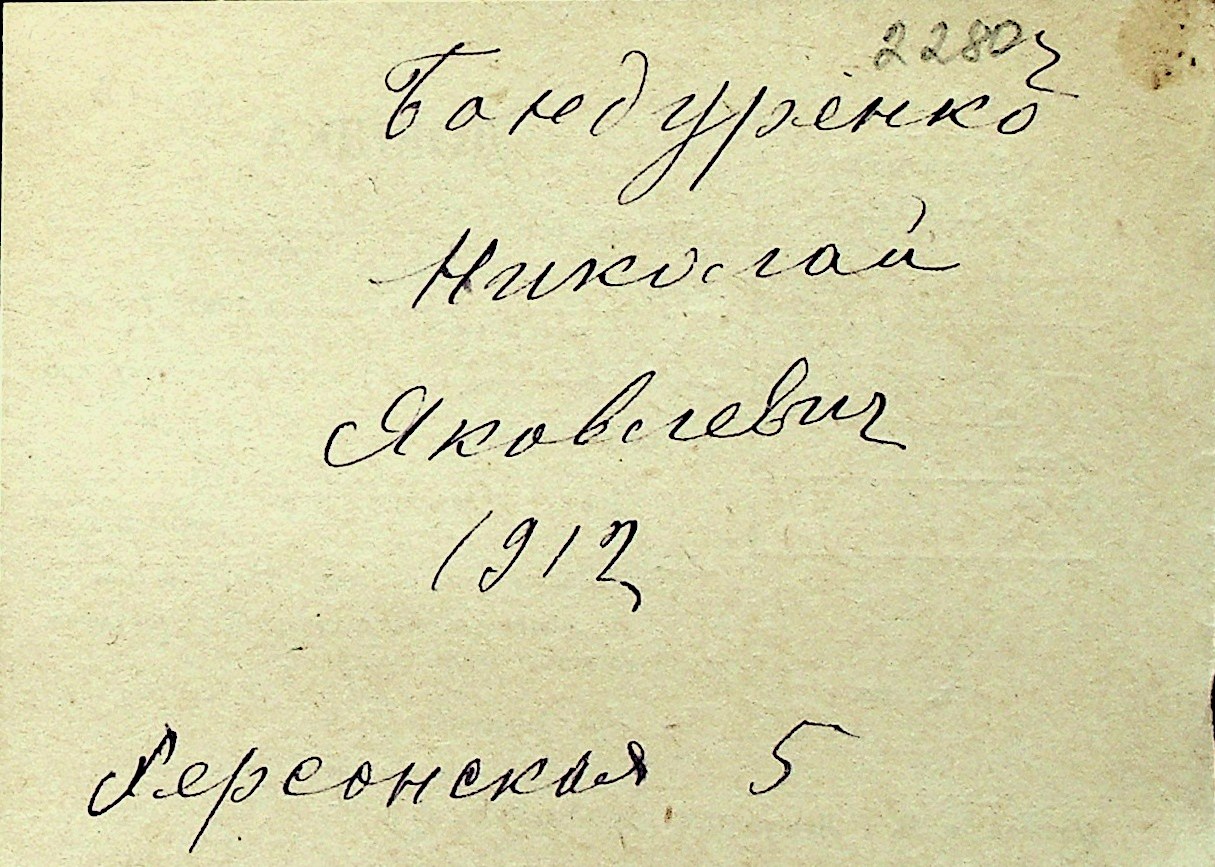 2280
Бандуренко
Николай
Яковлевич
1912
Херсонская 5